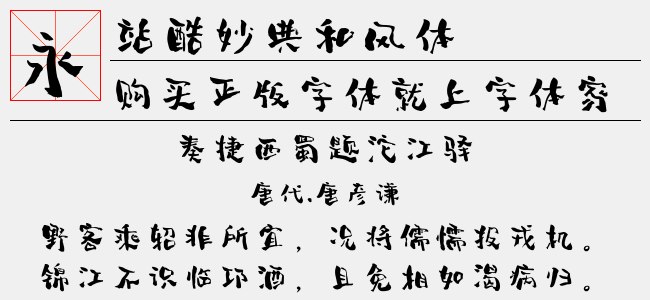 永
站酷妙典和风体
购买正版字体就上字体家
奏捷西蜀题沱江驿
唐代.唐彦谦
野客乘轺非所宜，况将儒懦报戎机。
锦江不识临邛酒，且免相如渴病归。